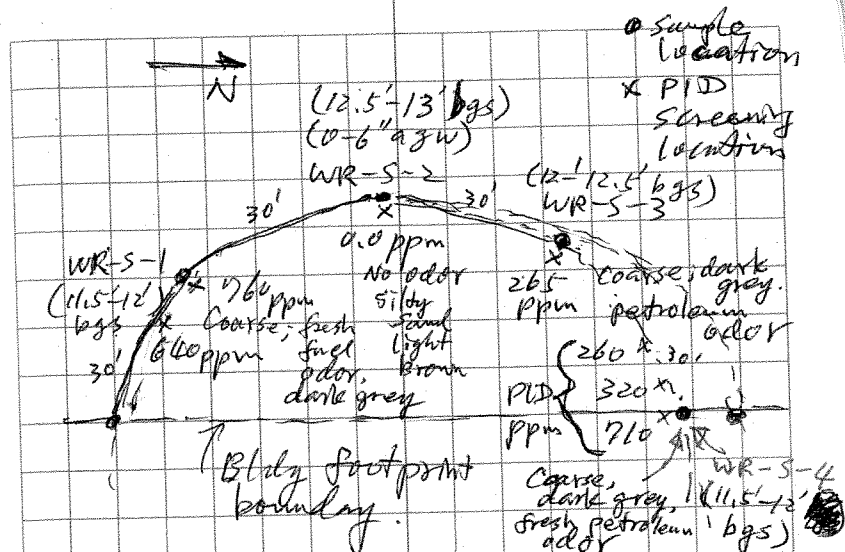 Sample
location
x PID
Screening
location
N
(12.5'-13' bgs)
(0-6" agw)
WR-S-2
(12'-12.5' bgs)
WR-S-3
30'
30'
0.0 ppm
No odor
silty
sand
light
brown
WR-S-1
(11.5'-12')
bgs
760 ppm
640 ppm
Coarse, fresh
fuel
odor,
dark grey
30'
265
ppm
coarse, dark
grey.
petroleum
odor
PID
ppm
260 x 30'
320 x
710 x
Bldg footprint
bounday.
Coarse,
dark grey,
fresh petroleum
odor
WR-S-4
(11.5'-12'
bgs)